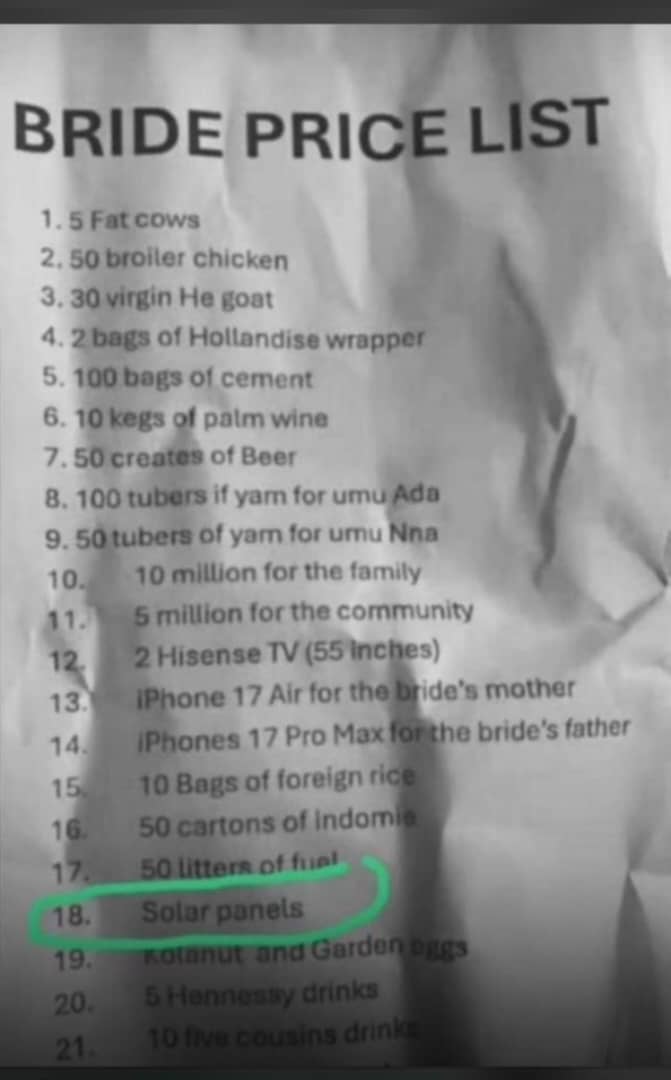 BRIDE PRICE LIST
1. 5 Fat cows
2. 50 broiler chicken
3. 30 virgin He goat
4. 2 bags of Hollandise wrapper
5. 100 bags of cement
6. 10 kegs of palm wine
7. 50 creates of Beer
8. 100 tubers if yam for umu Ada
9. 50 tubers of yam for umu Nna
10. 10 million for the family
11. 5 million for the community
12. 2 Hisense TV (55 inches)
13. iPhone 17 Air for the bride's mother
14. iPhones 17 Pro Max for the bride's father
15. 10 Bags of foreign rice
16. 50 cartons of indomie
17. 50 litters of fuel
18. Solar panels
19. Kolanut and Garden eggs
20. 5 Hennessy drinks
21. 10 five cousins drinks